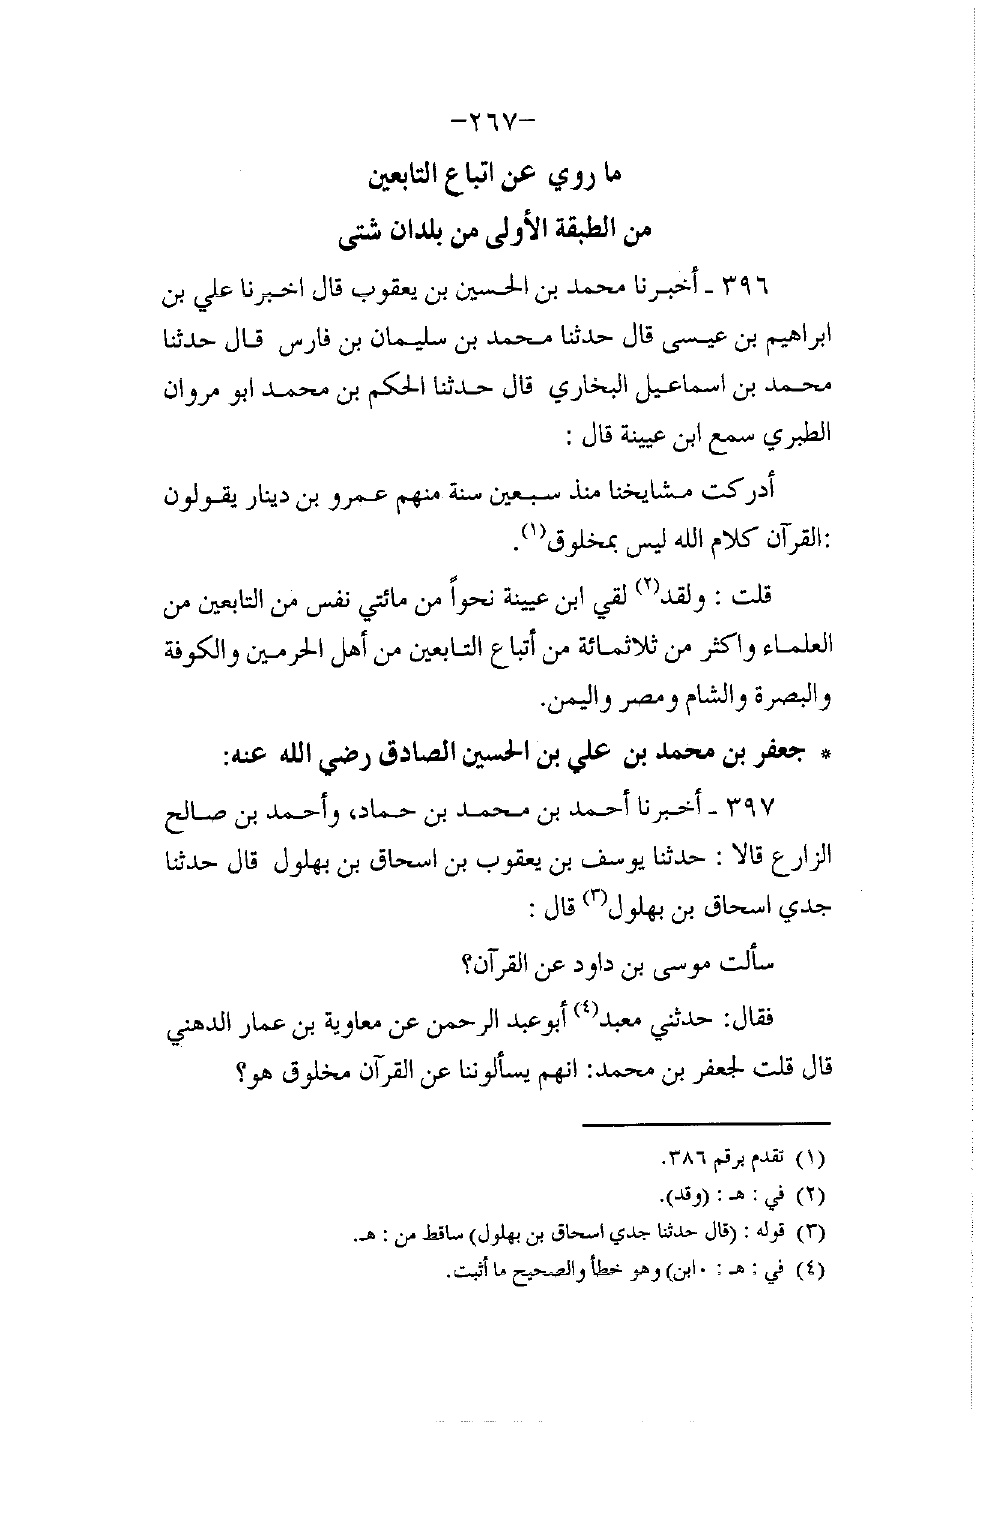 -٢٦٧-
ما روي عن اتباع التابعين
من الطبقة الأولى من بلدان شتى
٣٩٦ ـ أخبرنا محمد بن الحسين بن يعقوب قال اخبرنا علي بن
ابراهيم بن عيسى قال حدثنا محمد بن سليمان بن فارس قال حدثنا
محمد بن اسماعيل البخاري قال حدثنا الحكم بن محمد ابو مروان
الطبري سمع ابن عيينة قال :
أدركت مشايخنا منذ سبعين سنة منهم عمرو بن دينار يقولون
:القرآن كلام الله ليس بمخلوق(١).
قلت : ولقد(٢) لقي ابن عيينة نحواً من مائتي نفس من التابعين من
العلماء واكثر من ثلاثمائة من أتباع التابعين من أهل الحرمين والكوفة
والبصرة والشام ومصر واليمن.
* جعفر بن محمد بن علي بن الحسين الصادق رضي الله عنه:
٣٩٧ ـ أخبرنا أحمد بن محمد بن حماد، وأحمد بن صالح
الزارع قالا : حدثنا يوسف بن يعقوب بن اسحاق بن بهلول قال حدثنا
جدي اسحاق بن بهلول(٣) قال :
سألت موسى بن داود عن القرآن؟
فقال: حدثني معبد(٤) أبوعبد الرحمن عن معاوية بن عمار الدهني
قال قلت لجعفر بن محمد: انهم يسألوننا عن القرآن مخلوق هو؟
(١) تقدم برقم ٣٨٦.
(٢) في : هـ : (وقد).
(٣) قوله : (قال حدثنا جدي اسحاق بن بهلول) ساقط من : هـ.
(٤) في : هـ : ٠ابن) وهو خطأ والصحيح ما أثبت.